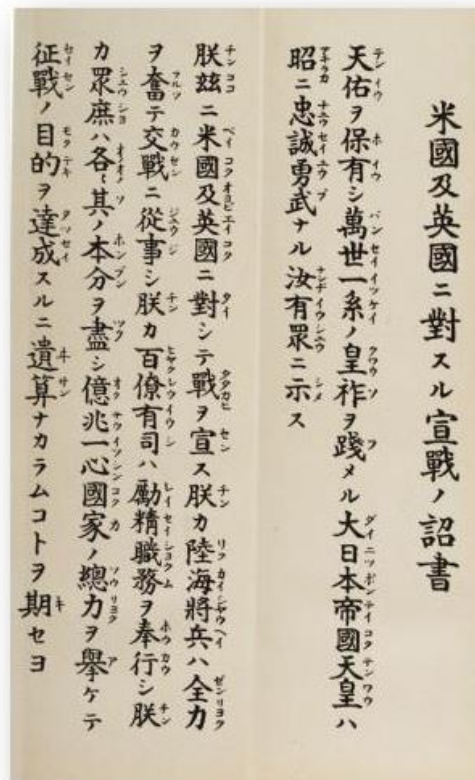 米國及英國ニ對スル宣戰ノ詔書
天佑ヲ保有シ萬世一系ノ皇祚ヲ踐メル大日本帝國天皇ハ
昭ニ忠誠勇武ナル汝有眾ニ示ス
朕玆ニ米國及英國ニ對シテ戰ヲ宣ス朕カ陸海將兵ハ全力
ヲ奮テ交戰ニ從事シ朕カ百僚有司ハ勵精職務ヲ奉行シ朕
カ眾庶ハ各〻其ノ本分ヲ盡シ億兆一心國家ノ總力ヲ擧ケテ
征戰ノ目的ヲ達成スルニ遺算ナカラムコトヲ期セヨ